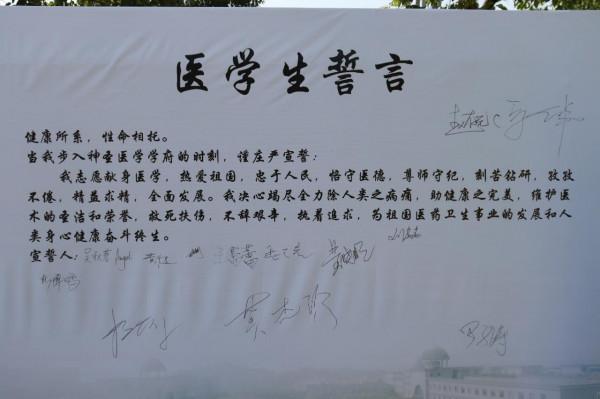 医学生誓言
健康所系，性命相托。
当我步入神圣医学学府的时刻，谨庄严宣誓：
我志愿献身医学，热爱祖国，忠于人民，恪守医德，尊师守纪，刻苦钻研，孜孜
不倦，精益求精，全面发展。我决心竭尽全力除人类之病痛，助健康之完美，维护医
术的圣洁和荣誉，救死扶伤，不辞艰辛，执着追求，为祖国医药卫生事业的发展和人
类身心健康奋斗终生。
宣誓人：